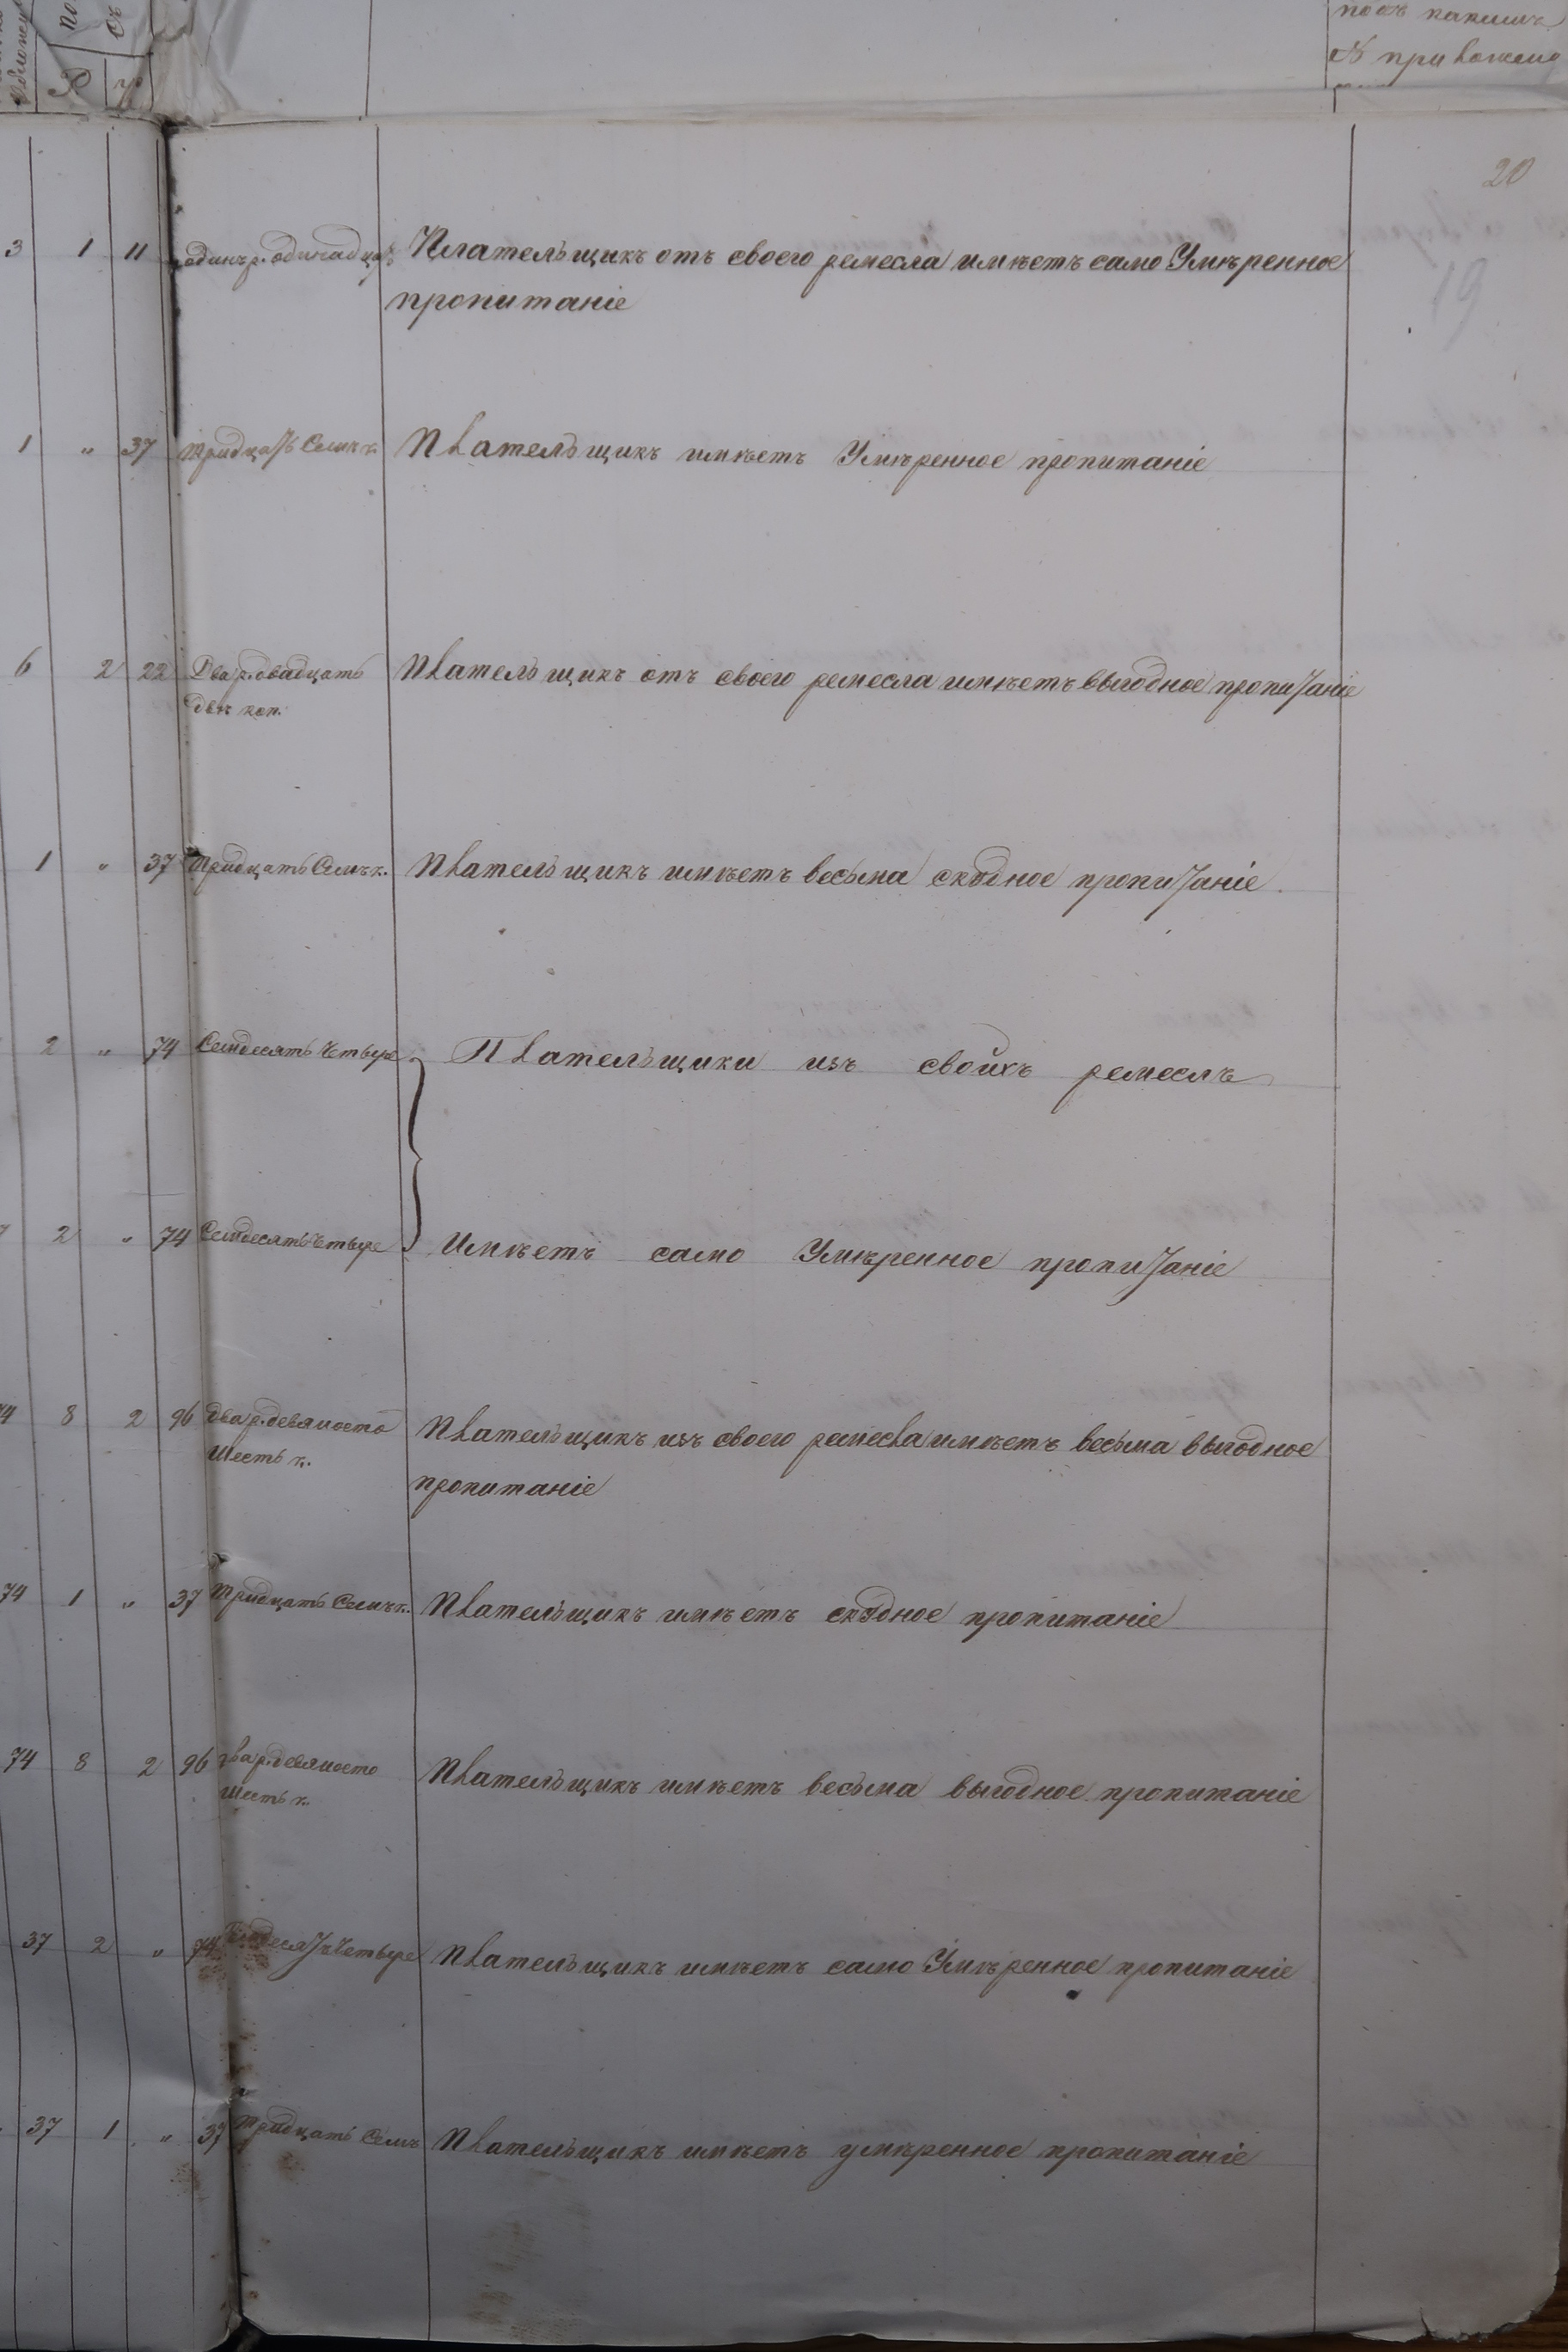 подъ какимъ
№ приложено
Р
20
19
3 1 11 одинъ р. одинадца. Плательщикъ отъ своего ремесла имѣетъ само Умѣренное
пропитаніе
1 " 37 тридцать Семь к. Плательщикъ имѣетъ Умѣренное пропитаніе
6 2 22 Два р. двадцать Плательщикъ отъ своего ремесла имѣетъ выгодное пропитаніе
двѣ коп.
1 " 37 тридцать Семь к. Плательщикъ имѣетъ весьма скудное пропитаніе.
2 " 74 Семдесять Четыре Плательщики изъ своихъ ремеслъ
2 " 74 Семдесять Четыре Имѣетъ само Умѣренное пропитаніе
8 2 96 два р. девяносто Плательщикъ изъ своего ремесла имѣетъ весьма выгодное
Шесть к. пропитаніе
74 1 " 37 тридцать Семь к. Плательщикъ имѣетъ скудное пропитаніе
74 8 2 96 два р. девяносто Плательщикъ имѣетъ весьма выгодное пропитаніе
Шесть к.
37 2 " 74 Семдесять Четыре Плательщикъ имѣетъ само Умѣренное пропитаніе
37 1 " 37 тридцать Семь Плательщикъ имѣетъ умѣренное пропитаніе